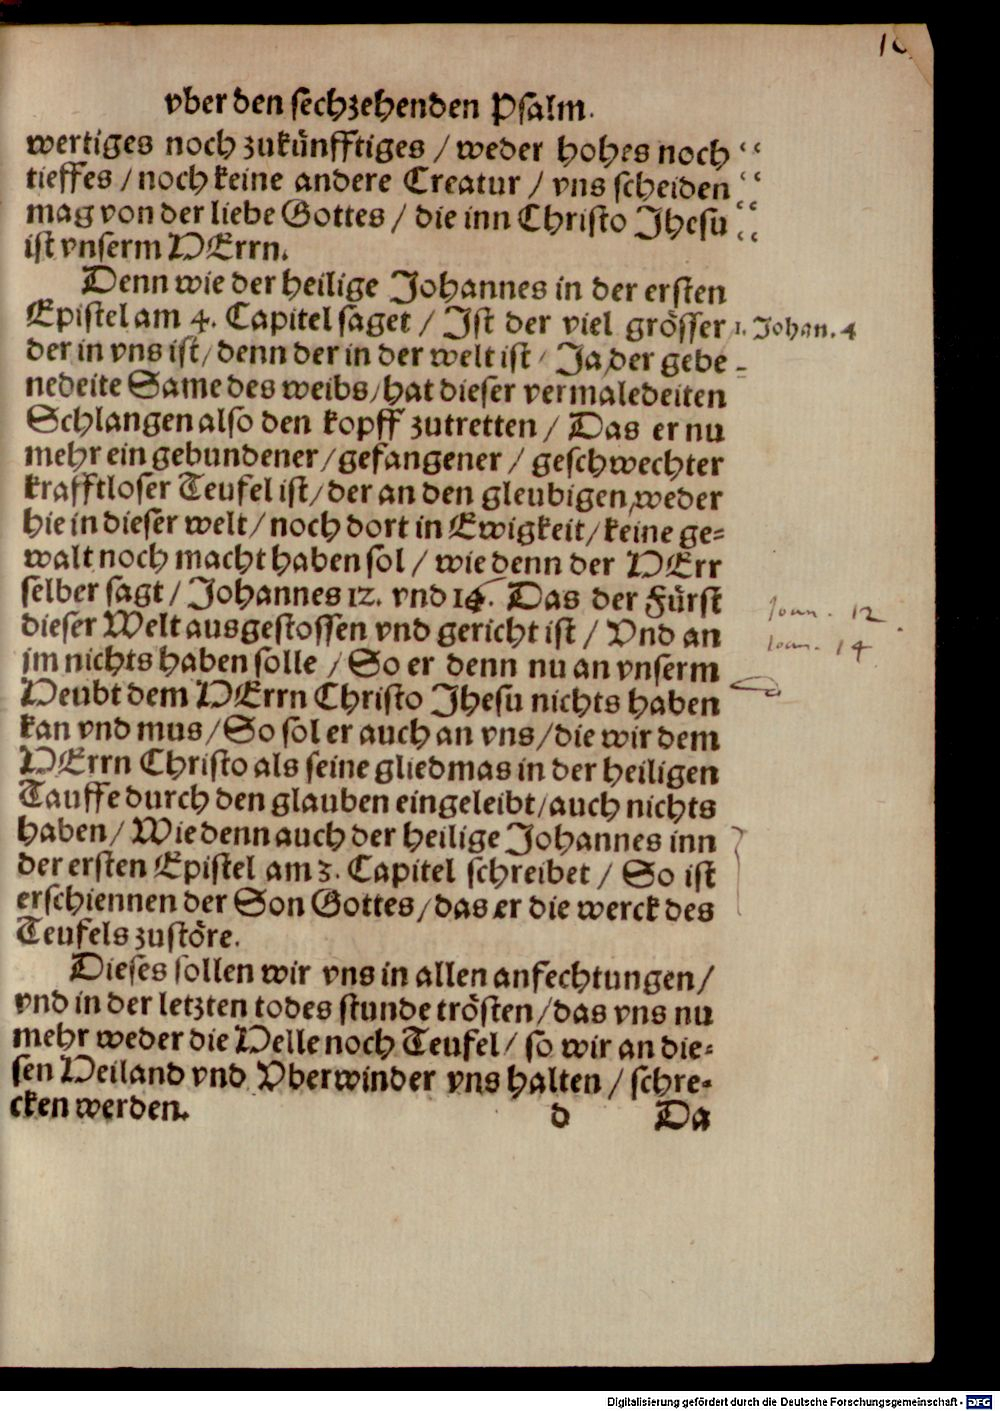 vber den sechzehenden Psalm.
wertiges noch zukünfftiges / weder hohes noch
tieffes / noch keine andere Creatur / vns scheiden
mag von der liebe Gottes / die inn Christo Jhesu
ist vnserm HErrn.
Denn wie der heilige Johannes in der ersten
Epistel am 4. Capitel saget / Ist der viel grösser
1. Johan. 4
der in vns ist / denn der in der welt ist / Ja der gebe-
nedeite Same des weibs / hat dieser vermaledeiten
Schlangen also den kopff zutretten / Das er nu
mehr ein gebundener / gefangener / geschwechter
krafftloser Teufel ist / der an den gleubigen, weder
hie in dieser welt / noch dort in Ewigkeit / keine ge-
walt noch macht haben sol / wie denn der HErr
selber sagt / Johannes 12. vnd 14. Das der Fürst
Ioan. 12
dieser Welt ausgestossen vnd gericht ist / Vnd an
Ioan. 14
jm nichts haben solle / So er denn nu an vnserm
Heubt dem HErrn Christo Jhesu nichts haben
kan vnd mus / So sol er auch an vns / die wir dem
HErrn Christo als seine gliedmas in der heiligen
Tauffe durch den glauben eingeleibt / auch nichts
haben / Wie denn auch der heilige Johannes inn
der ersten Epistel am 3. Capitel schreibet / So ist
erschiennen der Son Gottes / das er die werck des
Teufels zustöre.
Dieses sollen wir vns in allen anfechtungen /
vnd in der letzten todes stunde trösten / das vns nu
mehr weder die Helle noch Teufel / so wir an die-
sen Heiland vnd Vberwinder vns halten / schre-
cken werden.
d Da
Digitalisierung gefördert durch die Deutsche Forschungsgemeinschaft - DFG